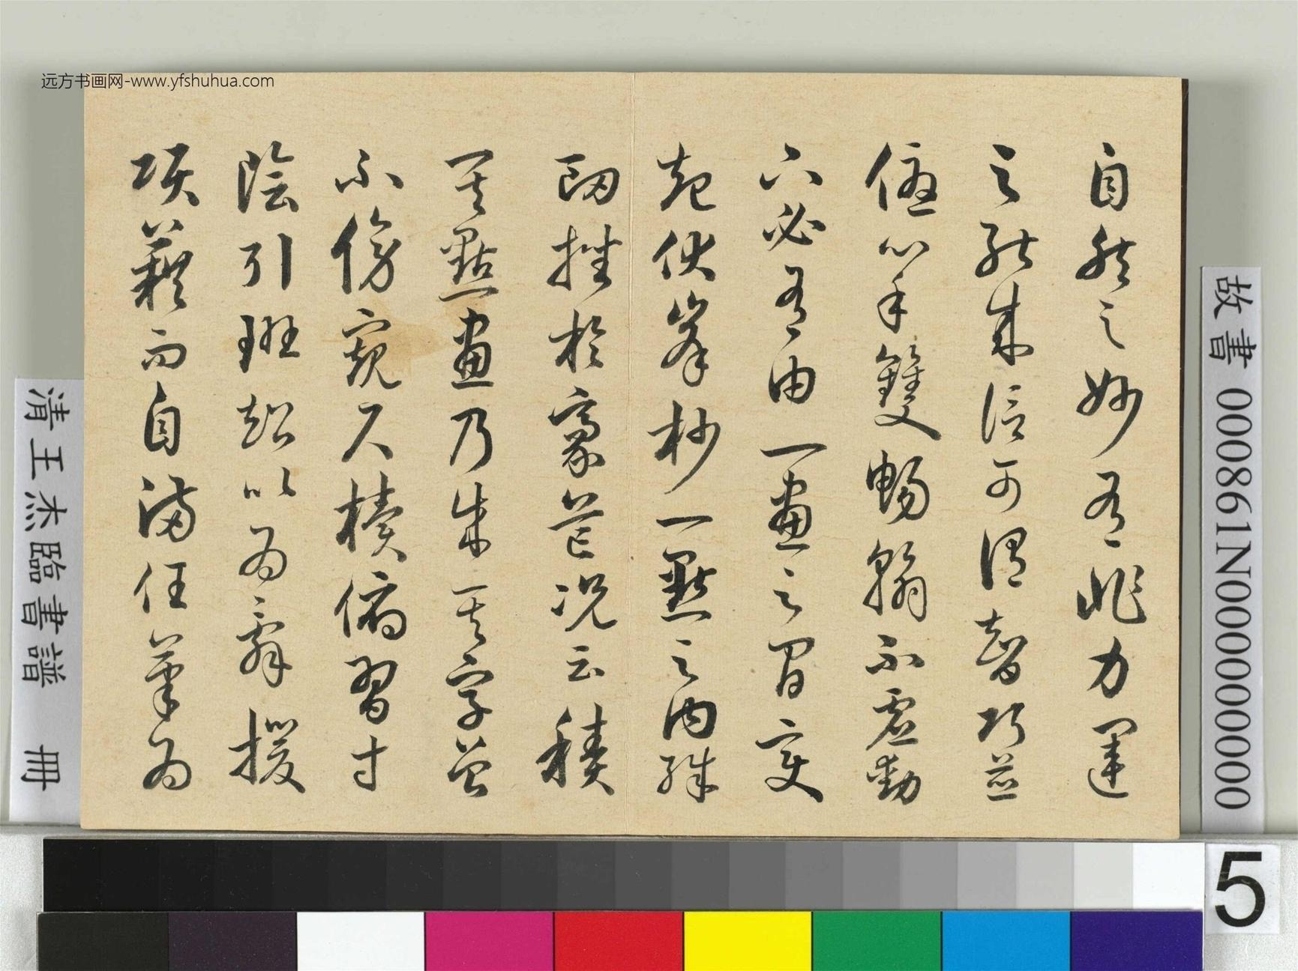 远方书画网-www.yfshuhua.com
自然之妙有非力運
之能成信可謂智巧兼
優心手雙暢翰不虛動
下必有由一畫之間變
起伏峯杪一點之內殊
衄挫於豪芒況云積
其點畫乃成其字曾
不傍窺尺櫝俯習寸
陰引班超以為辭援
項籍而自滿任筆為
故書 000861N000000000
清王杰臨書譜 冊
5